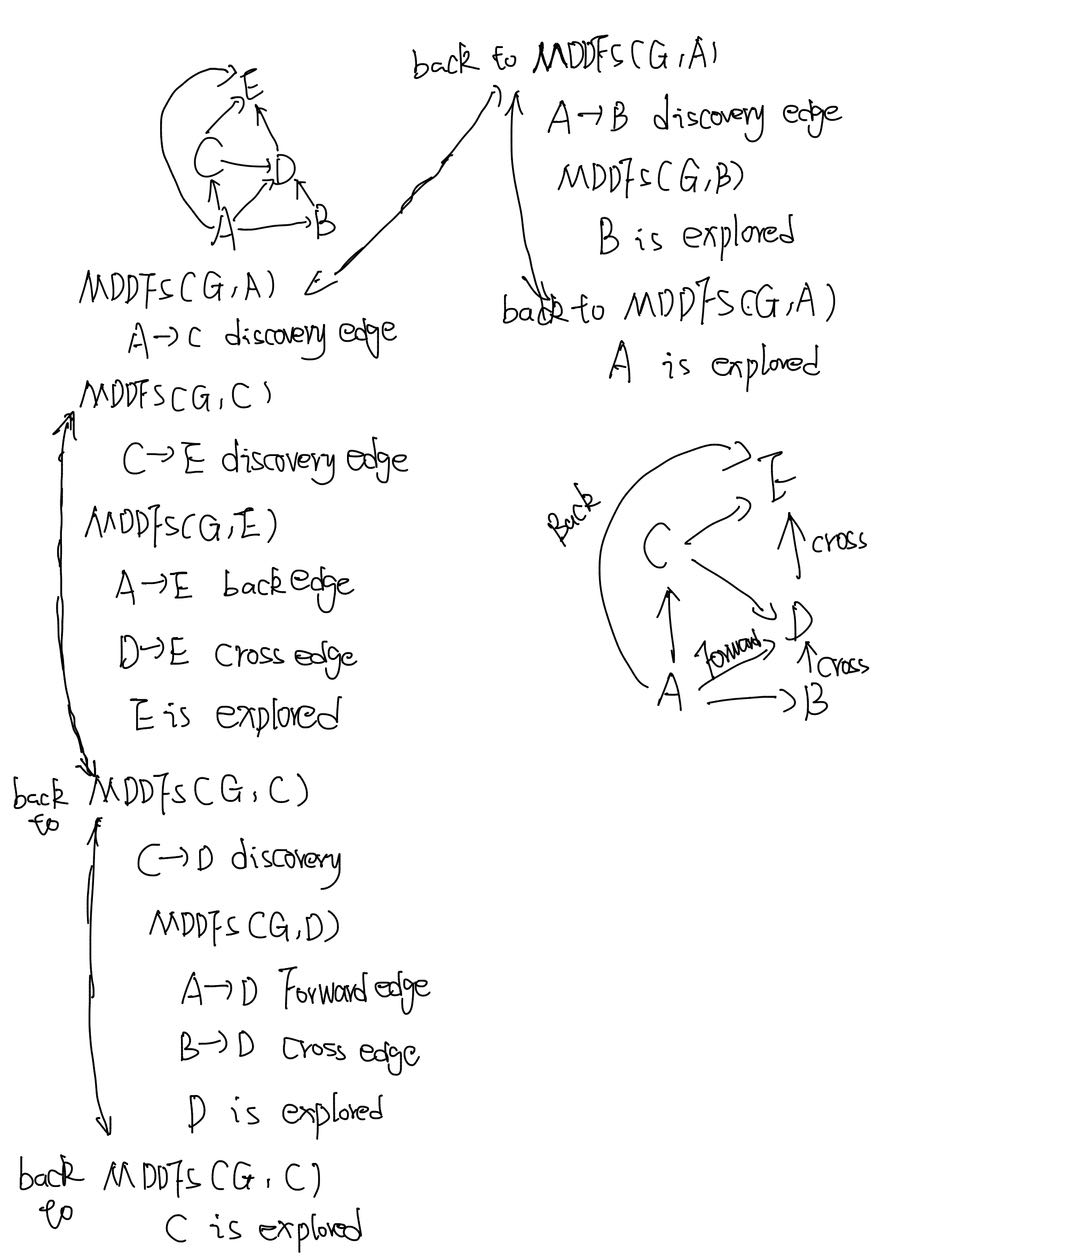 E
C
D
A
B
MDDFS(G,A)
A→C discovery edge
MDDFS(G,C)
C→E discovery edge
MDDFS(G,E)
A→E back edge
D→E cross edge
E is explored
back to MDDFS(G,C)
C→D discovery
MDDFS(G,D)
A→D Forward edge
B→D cross edge
D is explored
back to MDDFS(G,C)
C is explored
back to MDDFS(G,A)
A→B discovery edge
MDDFS(G,B)
B is explored
back to MDDFS(G,A)
A is explored
E
Back
C
cross
D
Forward
cross
A
B